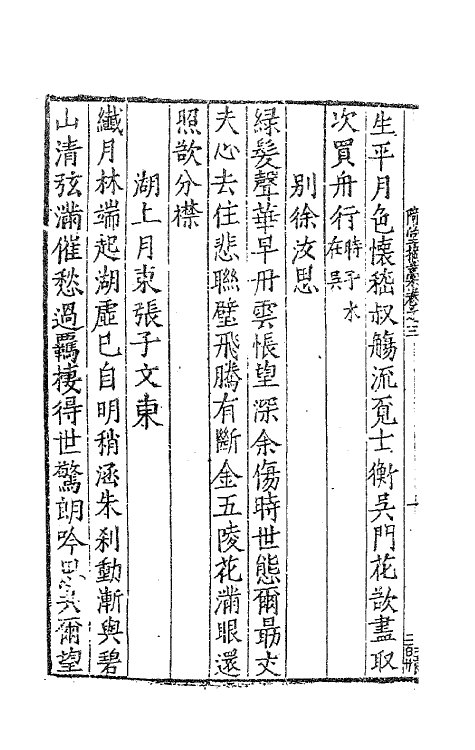 生平月色懷嵇叔觴流覔士衡吳門花欲盡取
次買舟行時子木在吳
別徐汝思
綠髮聲華早丹雲悵望深余傷時世態爾最丈
夫心去住悲聯璧飛騰有斷金五陵花滿眼還
照欲分襟
湖上月柬張子文東
纖月林端起湖虛已自明稍涵朱刹動漸與碧
山清弦滿催愁過羈棲得世驚朗吟思爾望